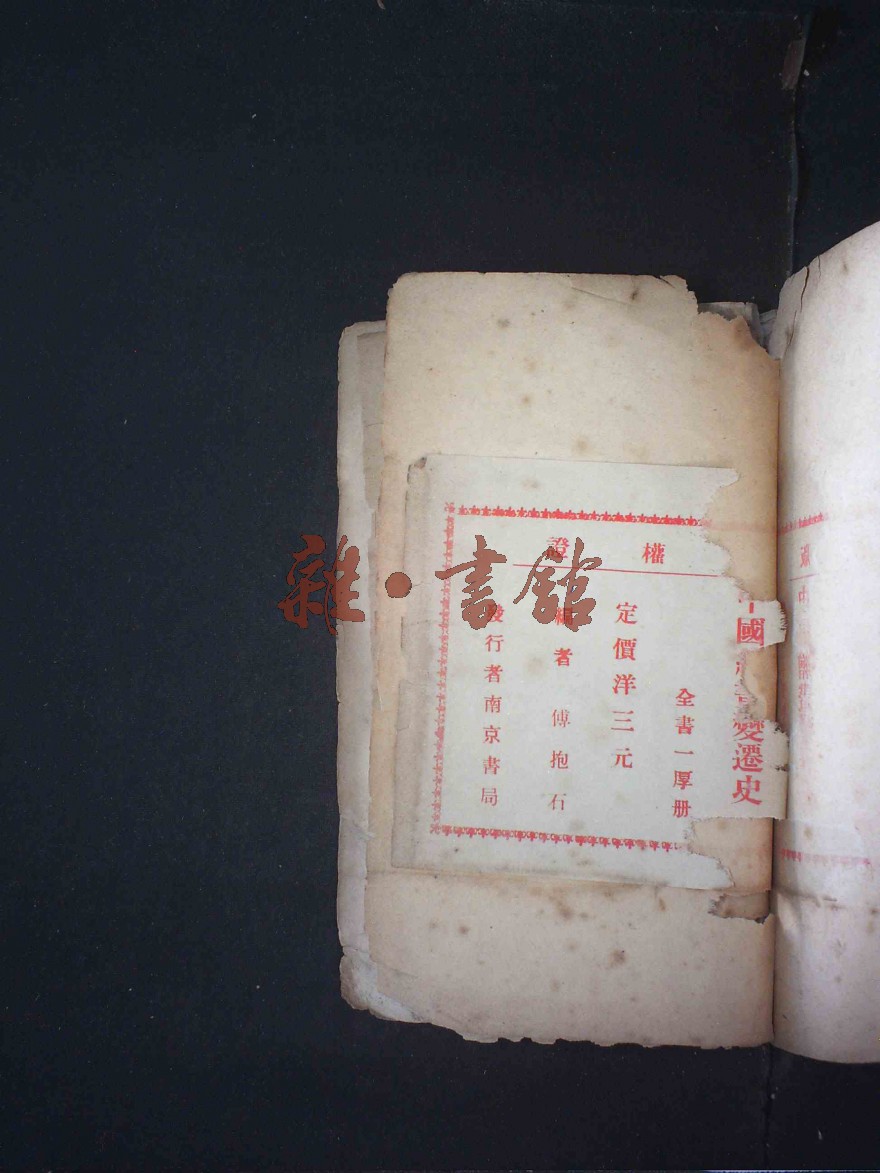 權證
國
變遷史
全書一厚册
定價洋三元
編者 傅抱石
發行者南京書局
雜·書館